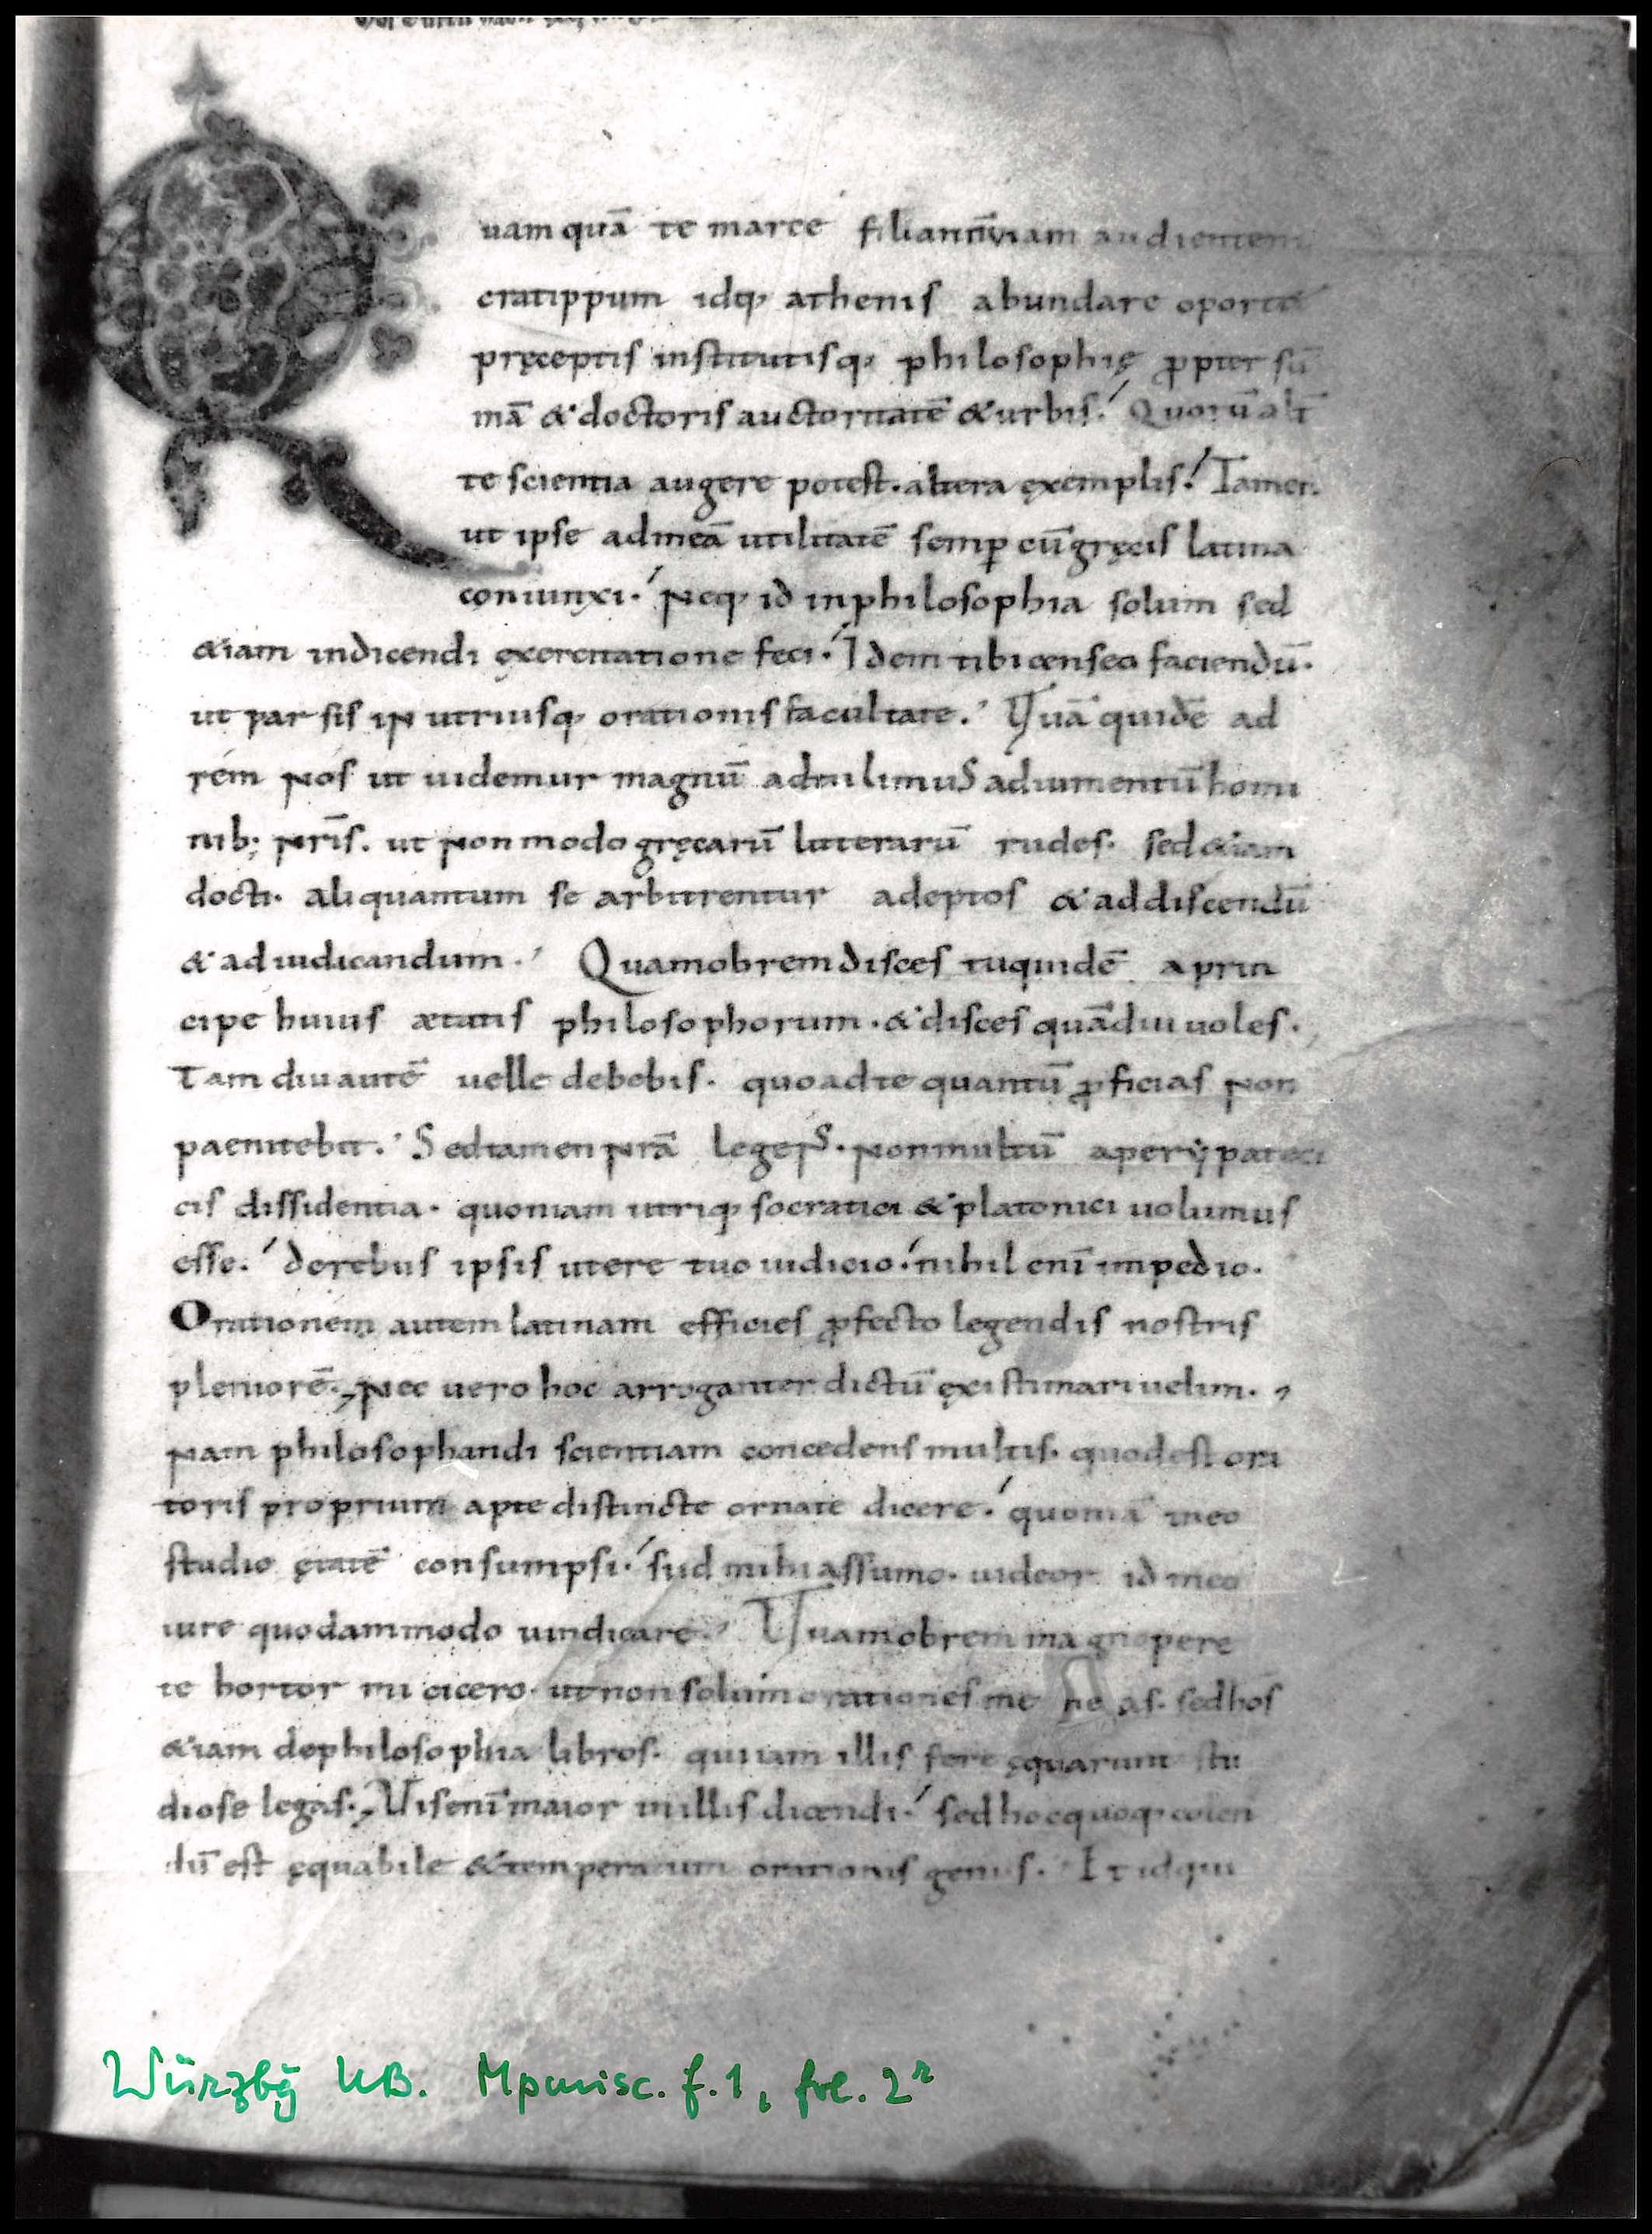 Quamquā te marce fili annū iam audientem
cratippum idq; athenis abundare oporte
pręceptis institutisq; philosophię ꝓpter sū
mā & doctoris auctoritatē & urbis. Quorū alt̄
te scientia augere potest. altera exemplis. Tamen
ut ipse ad meā utilitatē semꝑ cū gręcis latina
coniunxi. Neq; id in philosophia solum sed
&iam in dicendi exercitatione feci. Idem tibi censeo faciendū.
ut par sis in utriusq; orationis facultate. Quā quidē ad
rém nos ut uidemur magnū adtulimus adiumentū homi
nib; nr̄is. ut non modo gręcarū litterarū rudes. sed &iam
docti. aliquantum se arbitrentur adeptos & ad discendū
& ad iudicandum. Quamobrem disces tu quidē a prin
cipe huius ætatis philosophorum. & disces quādiu uoles.
Tam diu autē uelle debebis. quoad te quantū ꝓficias non
paenitebit. Sed tamen nr̄a legens. non multū a perÿpateti
cis dissidentia. quoniam utriq; socratici & platonici uolumus
esse. de rebus ipsis utere tuo iudicio. nihil enī impedio.
Orationem autem latinam efficies ꝓfecto legendis nostris
pleniorē. Nec uero hoc arroganter dictū existimari uelim.
Nam philosophandi scientiam concedens multis. quod est ora
toris proprium apte distincte ornate dicere. quoniā in eo
studio ętatē consumpsi. si id mihi assumo. uideor id meo
iure quodammodo uindicare. Quamobrem magnopere
te hortor mi cicero. ut non solum orationes me as. sed hos
&iam de philosophia libros. qui iam illis fere ęquarunt stu
diose legas. Uis enī maior in illis dicendi. sed hoc quoq; colen
dū est ęquabile & temperatum orationis genus. Et id qui
Würzbg UB. Mpmisc. f. 1, fol. 2r